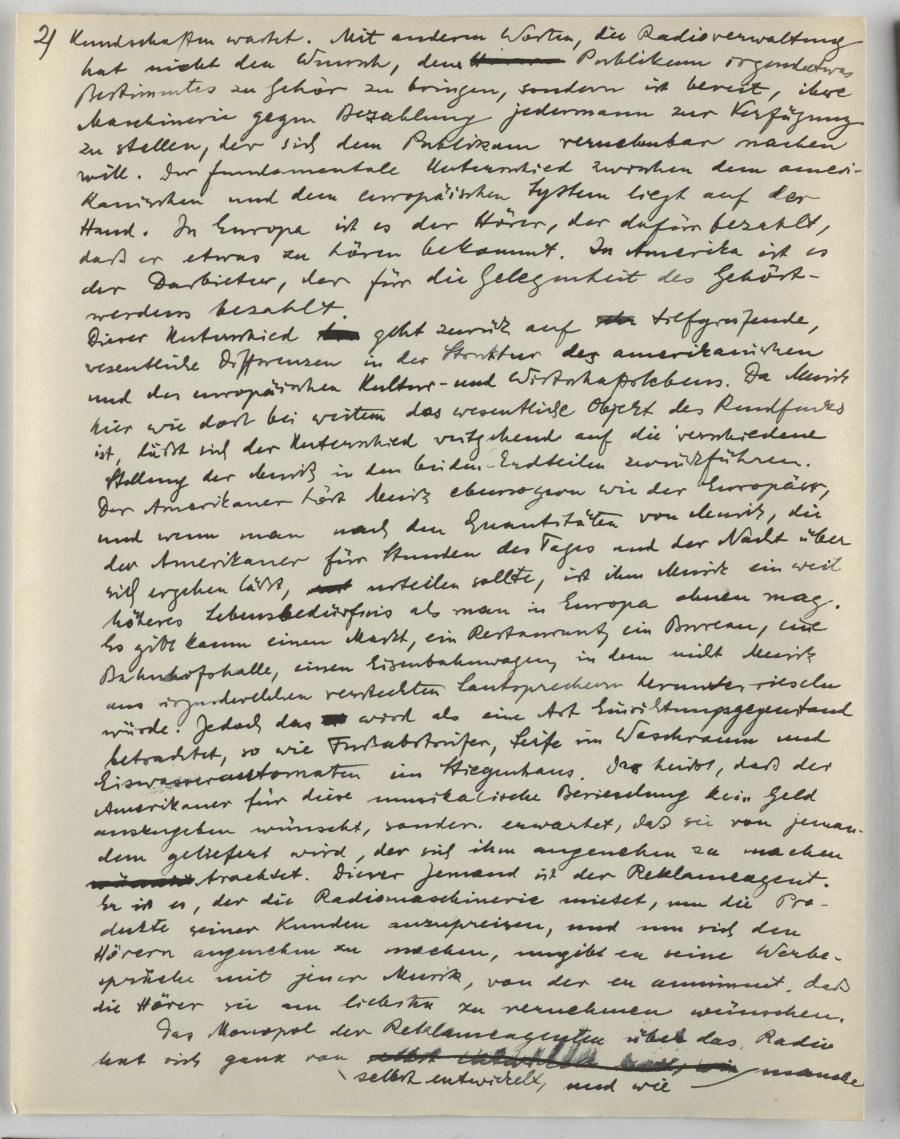 2) Kundschaften wartet. Mit anderen Worten, die Radioverwaltung
hat nicht den Wunsch, dem Publikum irgendetwas
Bestimmtes zu Gehör zu bringen, sondern ist bereit, ihre
Maschinerie gegen Bezahlung jedermann zur Verfügung
zu stellen, der sich dem Publikum vernehmbar machen
will. Der fundamentale Unterschied zwischen dem ameri-
kanischen und dem europäischen System liegt auf der
Hand. In Europa ist es der Hörer, der dafür bezahlt,
daß er etwas zu hören bekommt. In Amerika ist es
der Darbieter, der für die Gelegenheit des Gehört-
werdens bezahlt.
Dieser Unterschied geht zurück auf tiefgreifende,
wesentliche Differenzen in der Struktur des amerikanischen
und des europäischen Kultur- und Wirtschaftslebens. Da Musik
hier wie dort bei weitem das wesentliche Objekt des Rundfunks
ist, läßt sich der Unterschied weitgehend auf die verschiedene
Stellung der Musik in den beiden Erdteilen zurückführen.
Der Amerikaner hört Musik ebensogern wie der Europäer,
und wenn man nach den Quantitäten von Musik, die
der Amerikaner für Stunden des Tages und der Nacht über
sich ergehen läßt, urteilen sollte, ist ihm Musik ein weit
höheres Lebensbedürfnis als man in Europa ahnen mag.
Es gibt kaum einen Markt, ein Restaurant, ein Bureau, eine
Bahnhofshalle, einen Eisenbahnwagen, in dem nicht Musik
aus irgendwelchen versteckten Lautsprechern herunterrieseln
würde. Jedoch das wird als eine Art Einrichtungsgegenstand
betrachtet, so wie Fußabstreifer, Seife im Waschraum und
Eiswasserautomaten im Stiegenhaus. Das heißt, daß der
Amerikaner für diese musikalische Berieselung kein Geld
auszugeben wünscht, sondern erwartet, daß sie von jeman-
dem geliefert wird, der sich ihm angenehm zu machen
trachtet. Dieser Jemand ist der Reklameagent.
Er ist es, der die Radiomaschinerie mietet, um die Pro-
dukte seiner Kunden anzupreisen, und um sich den
Hörern angenehm zu machen, umgibt er seine Werbe-
sprüche mit jener Musik, von der er annimmt, daß
die Hörer sie am liebsten zu vernehmen wünschen.
Das Monopol der Reklameagenten über das Radio
hat sich ganz von selbst entwickelt, und wie manche